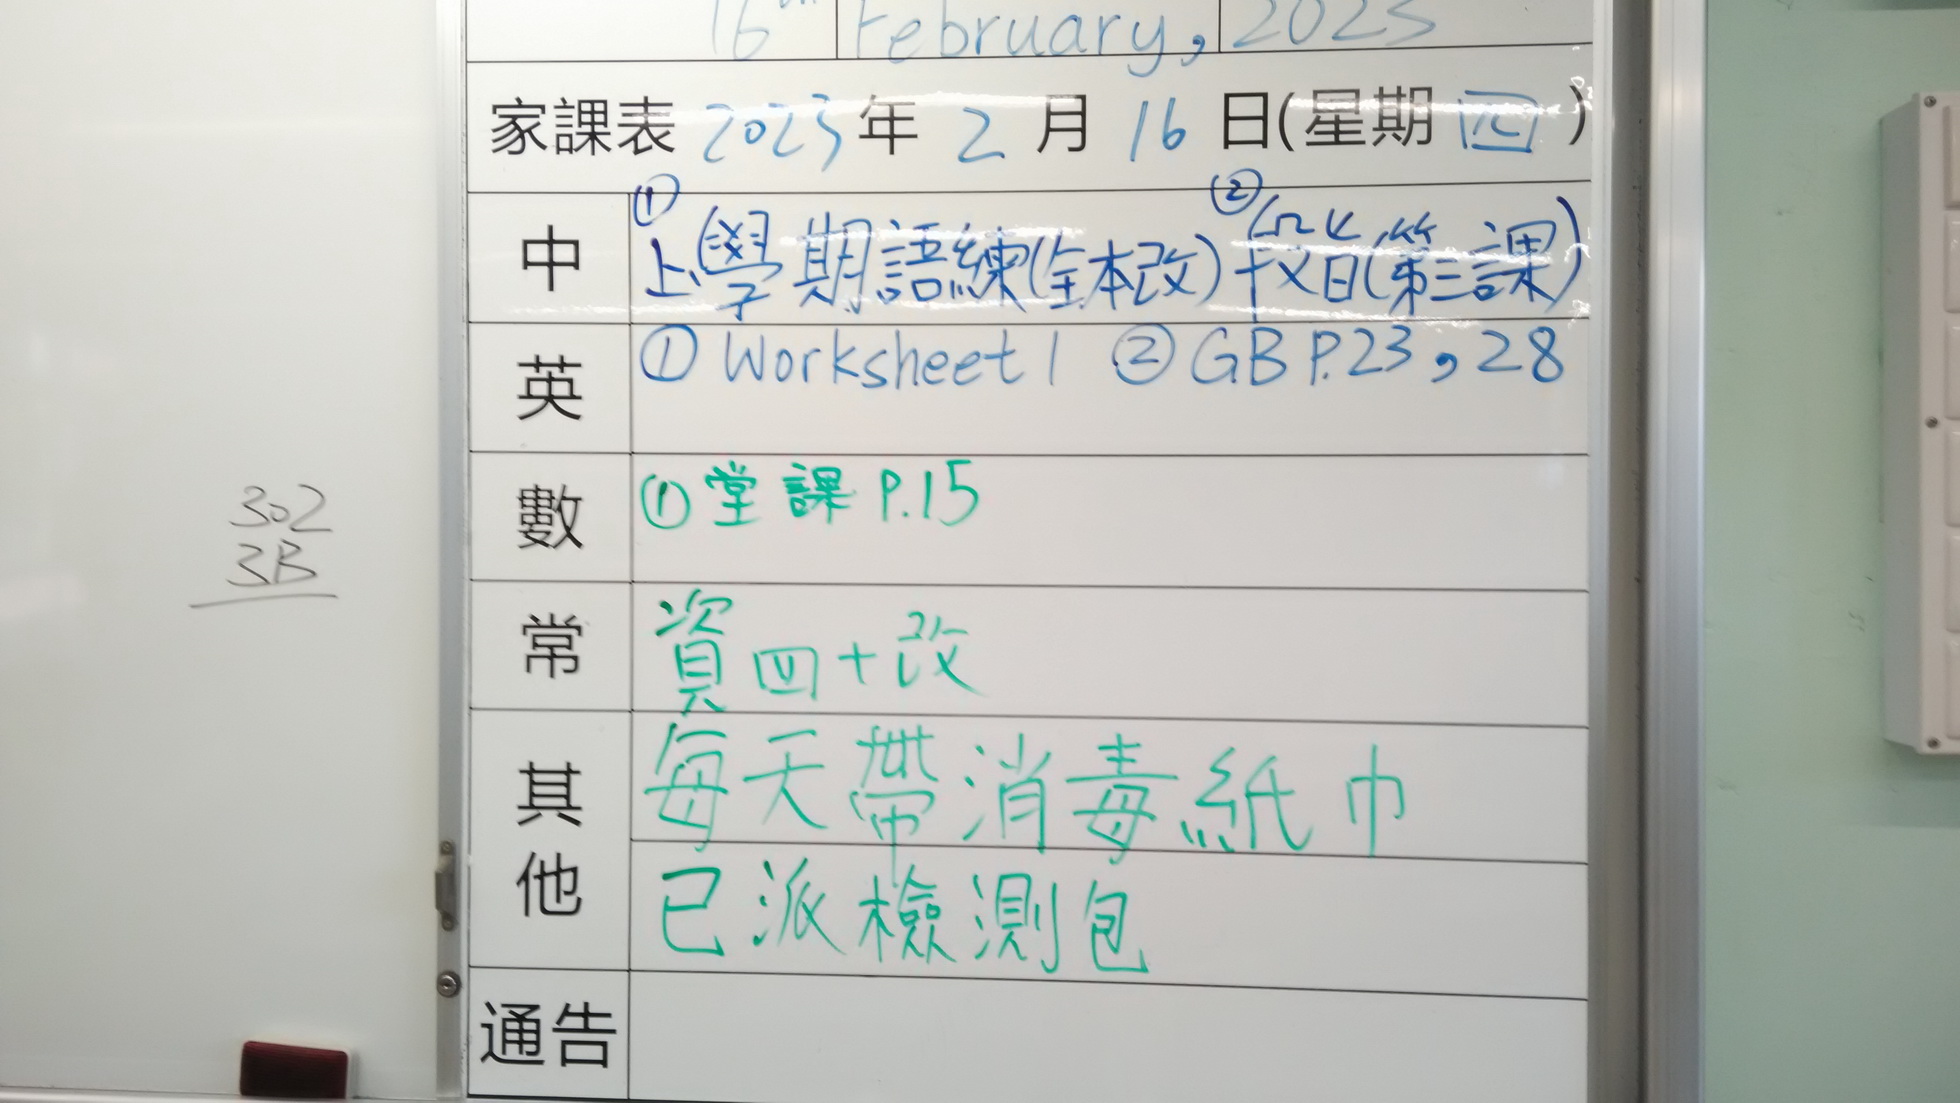 16th February, 2023
家課表 2023年 2月 16日(星期四)
302
3B
中 ① 上學期語練(全本改) ② (第三課)
英 ① Worksheet 1 ② GB P.23, 28
數 ① 堂課 P.15
常 資四+改
其他 每天帶消毒紙巾
已派檢測包
通告